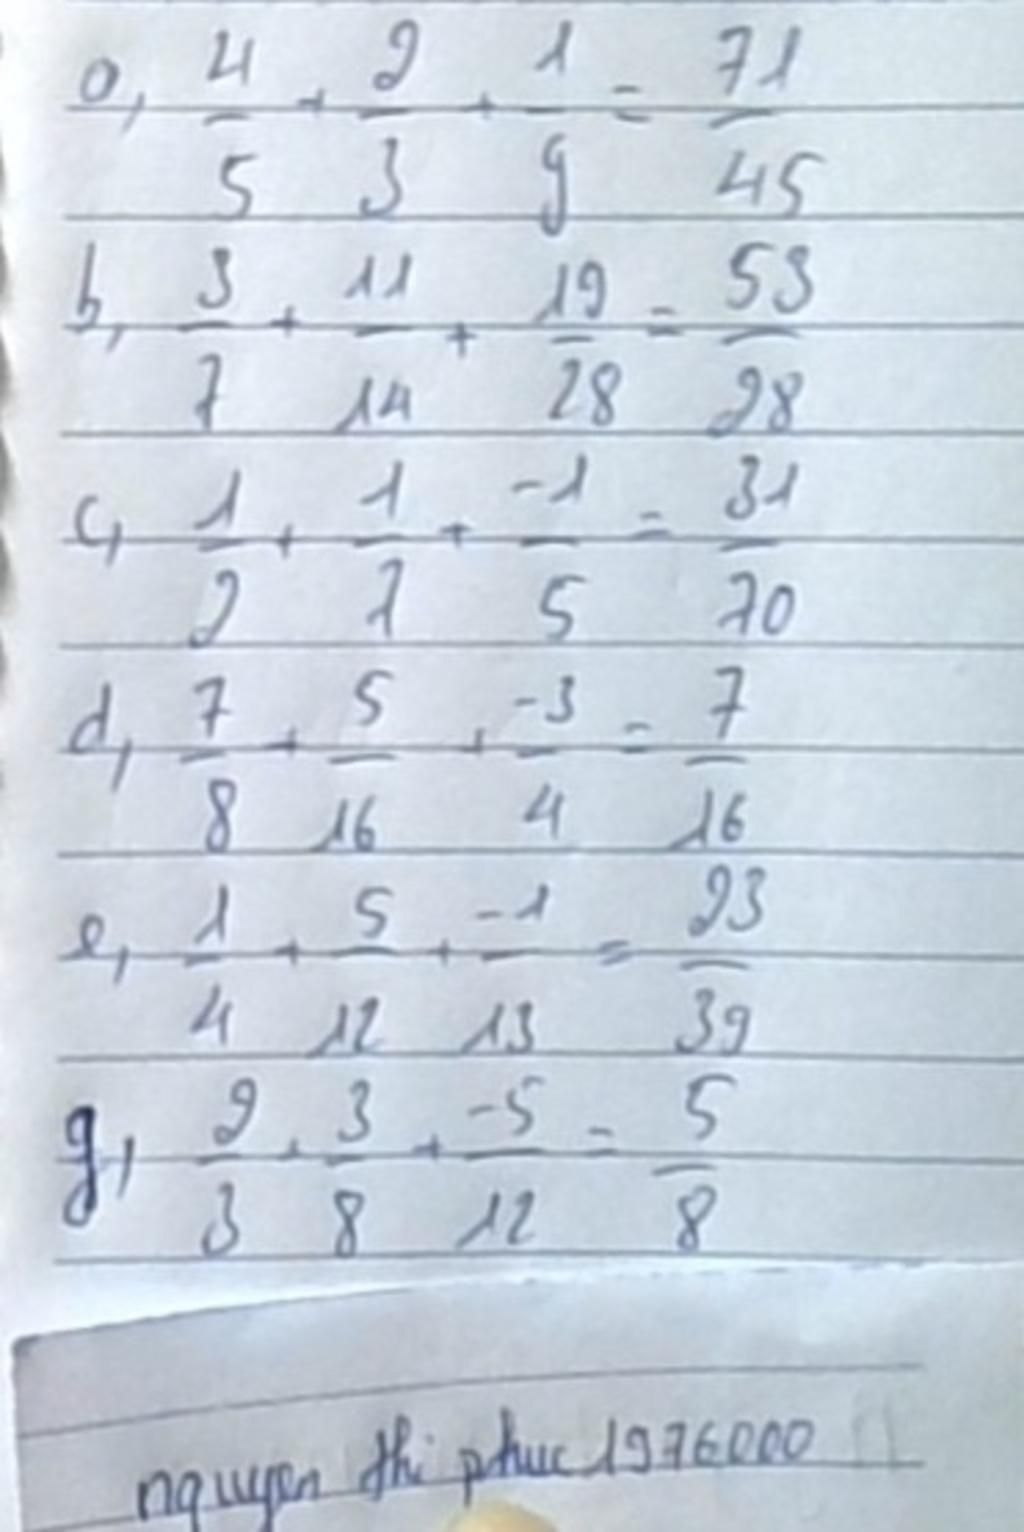 a, 4/5 + 2/3 + 1/9 = 71/45
b, 3/7 + 11/14 + 19/28 = 53/28
c, 1/2 + 1/7 + -1/5 = 31/70
d, 7/8 + 5/16 + -3/4 = 7/16
e, 1/4 + 5/12 + -1/13 = 23/39
g, 2/3 + 3/8 + -5/12 = 5/8
nguyen thi phuc 1976000